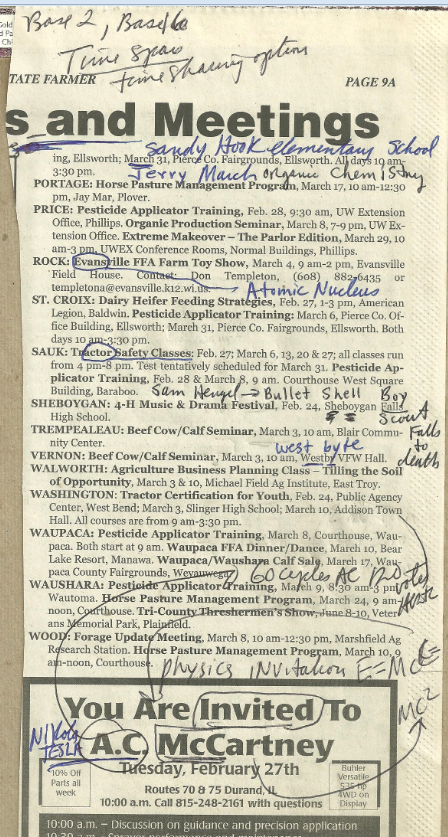 Base 2, Base 16
Time Span
time sharing option
TATE FARMER
PAGE 9A
s and Meetings
Sandy Hook elementary School
ing, Ellsworth; March 31, Pierce Co. Fairgrounds, Ellsworth. All days 10 am-
3:30 pm.
Jerry March organic Chemistry
PORTAGE: Horse Pasture Management Program, March 17, 10 am-12:30
pm, Jay Mar, Plover.
PRICE: Pesticide Applicator Training, Feb. 28, 9:30 am, UW Extension
Office, Phillips. Organic Production Seminar, March 8, 7-9 pm, UW Ex-
tension Office. Extreme Makeover – The Parlor Edition, March 29, 10
am-3 pm, UWEX Conference Rooms, Normal Buildings, Phillips.
ROCK: Evansville FFA Farm Toy Show, March 4, 9 am-2 pm, Evansville
Field House. Contact: Don Templeton, (608) 882-6435 or
templetona@evansville.k12.wi.us.
Atomic Nucleus
ST. CROIX: Dairy Heifer Feeding Strategies, Feb. 27, 1-3 pm, American
Legion, Baldwin. Pesticide Applicator Training: March 6, Pierce Co. Of-
fice Building, Ellsworth; March 31, Pierce Co. Fairgrounds, Ellsworth. Both
days 10 am-3:30 pm.
SAUK: Tractor Safety Classes: Feb. 27; March 6, 13, 20 & 27; all classes run
from 4 pm-8 pm. Test tentatively scheduled for March 31. Pesticide Ap-
plicator Training, Feb. 28 & March 8, 9 am. Courthouse West Square
Building, Baraboo.
Sam Hengel → Bullet Shell
Boy
Scout
Falls
to
death
SHEBOYGAN: 4-H Music & Drama Festival, Feb. 24, Sheboygan Falls
High School.
TREMPEALEAU: Beef Cow/Calf Seminar, March 3, 10 am, Blair Commu-
nity Center.
west byte
VERNON: Beef Cow/Calf Seminar, March 3, 10 am, Westby VFW Hall.
WALWORTH: Agriculture Business Planning Class – Tilling the Soil
of Opportunity, March 3 & 10, Michael Field Ag Institute, East Troy.
WASHINGTON: Tractor Certification for Youth, Feb. 24, Public Agency
Center, West Bend; March 3, Slinger High School; March 10, Addison Town
Hall. All courses are from 9 am-3:30 pm.
WAUPACA: Pesticide Applicator Training, March 8, Courthouse, Wau-
paca. Both start at 9 am. Waupaca FFA Dinner/Dance, March 10, Bear
Lake Resort, Manawa. Waupaca/Waushara Calf Sale, March 17, Wau-
paca County Fairgrounds, Weyauwega.
60 Cycles AC 120
WAUSHARA: Pesticide Applicator Training, March 9, 8:30 am-3 pm,
Wautoma. Horse Pasture Management Program, March 24, 9 am-
noon, Courthouse. Tri-County Threshermen's Show, June 8-10, Veter-
ans Memorial Park, Plainfield.
WOOD: Forage Update Meeting, March 8, 10 am-12:30 pm, Marshfield Ag
Research Station. Horse Pasture Management Program, March 10, 9
am-noon, Courthouse.
physics invitation E=MC
E=
MC2
You Are Invited To
Nikola
TESLA
A.C. McCartney
Tuesday, February 27th
10% Off
Parts all
week
Routes 70 & 75 Durand, IL
10:00 a.m. Call 815-248-2161 with questions
Buhler
Versatile
535 hp
4WD on
Display
10:00 a.m. – Discussion on guidance and precision application